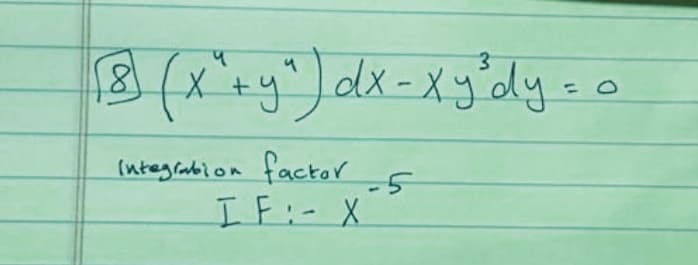 8 (x⁴+y⁴) dx - xy³dy = 0
Integration factor
IF:- x⁻⁵